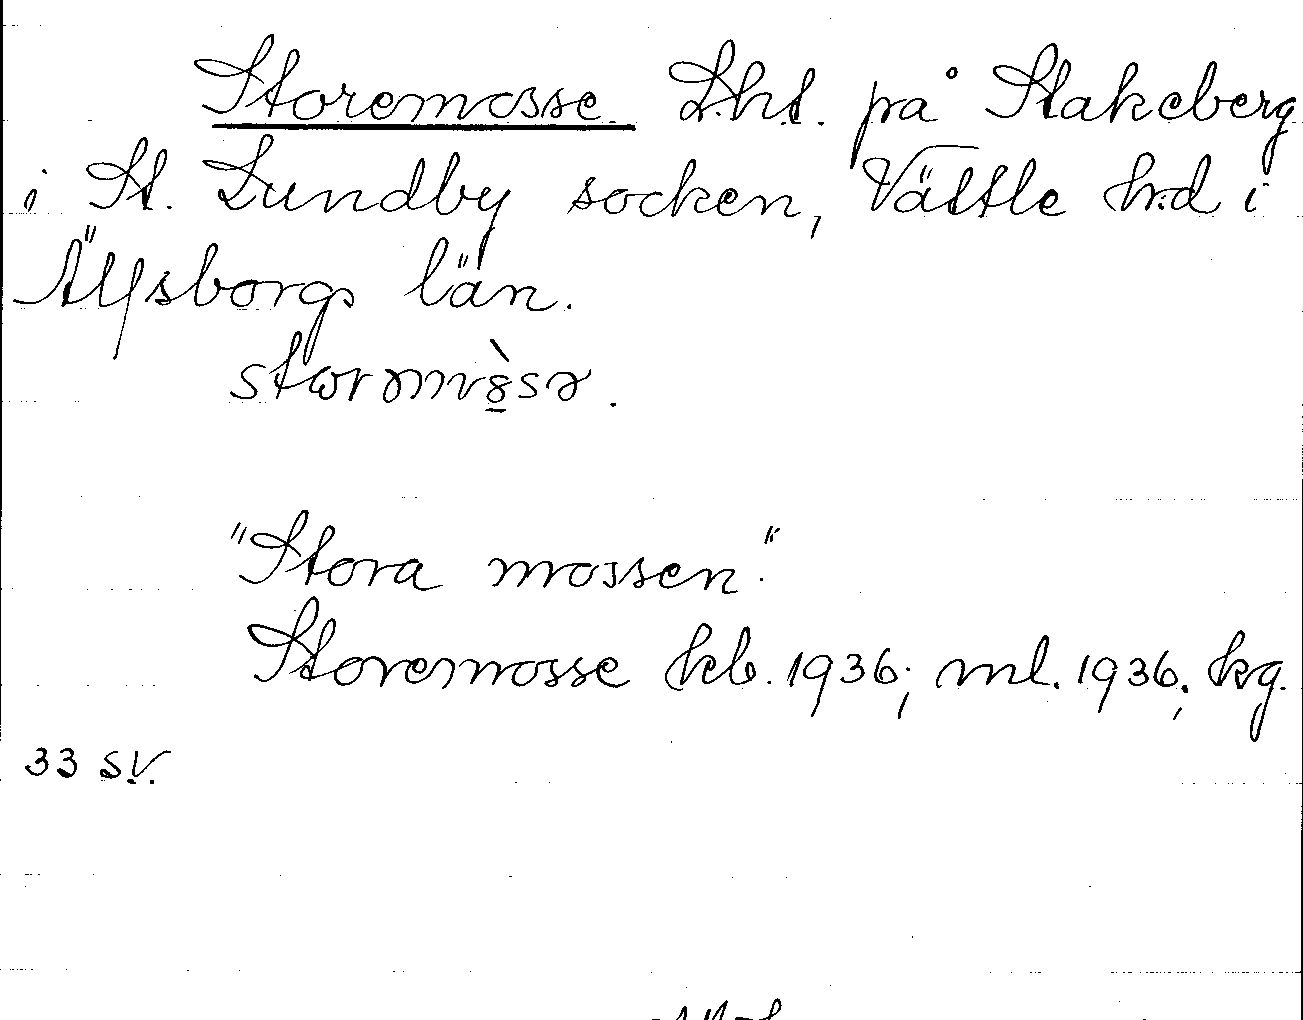 Storemosse. L.h.t. på Stakeberg
i St. Lundby socken, Vättle h:d i
Älfsborgs län.
"Stora mossen".
Storemosse kb. 1936; ml. 1936; kg.
33 S.V.